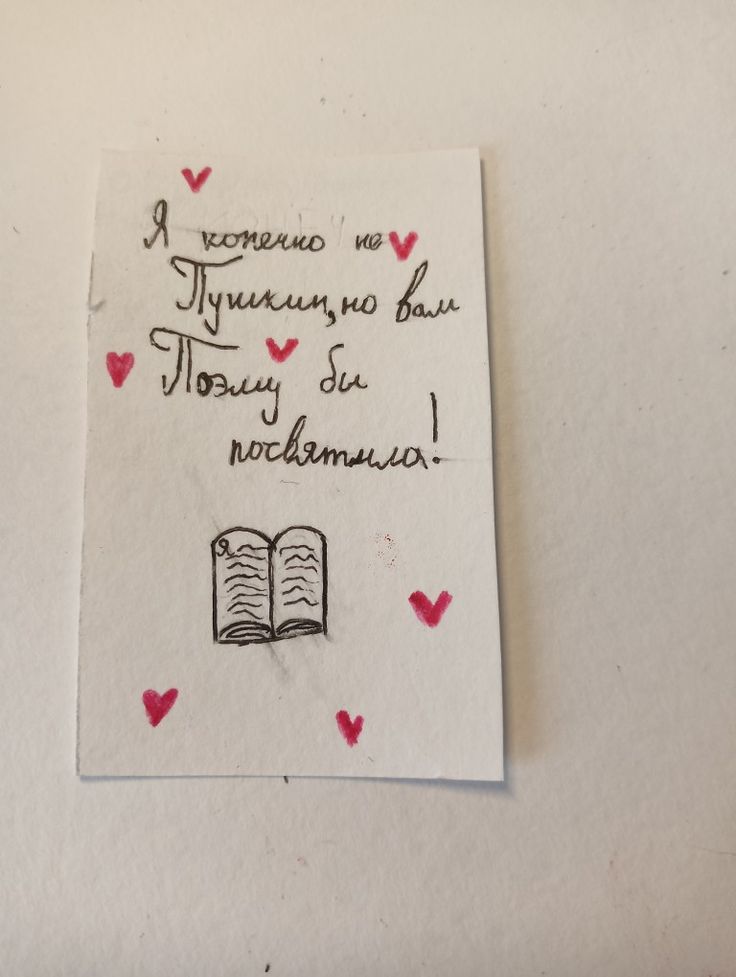 Я конечно не
Пушкин, но вам
Поэму бы
посвятила!
Я